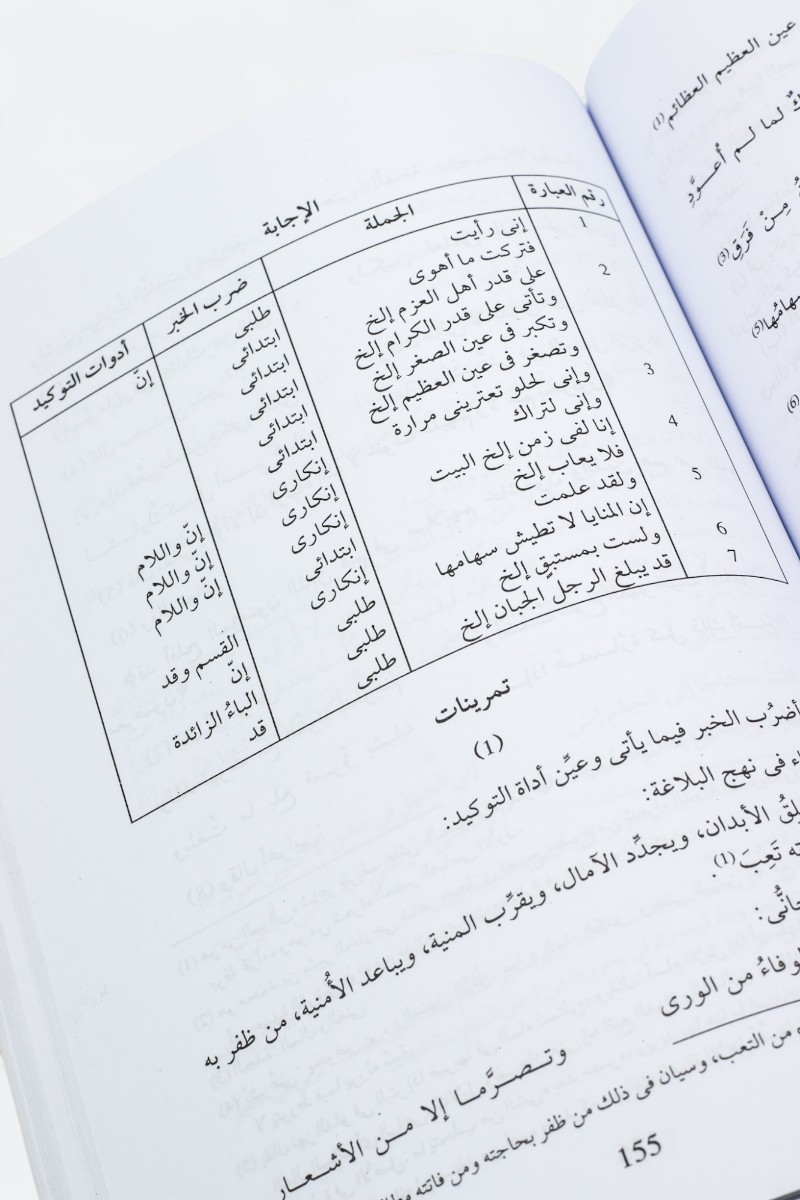 الإجابة
رقم العبارة الجملة ضرب الخبر أدوات التوكيد
1 إنى رأيت طلبى إنّ
فتركت ما أهوى ابتدائى
2 على قدر أهل العزم إلخ ابتدائى
وتأتى على قدر الكرام إلخ ابتدائى
وتكبر فى عين الصغر إلخ ابتدائى
وتصغر فى عين العظيم إلخ ابتدائى
3 وإنى لحلو تعترينى مرارة إنكارى إنّ واللام
وإنى لتراك إنكارى إنّ واللام
4 إنا لفى زمن إلخ البيت إنكارى إنّ واللام
فلا يعاب إلخ ابتدائى
5 ولقد علمت إنكارى القسم وقد
إن المنايا لا تطيش سهامها طلبى إنّ
6 ولست بمستبقٍ إلخ طلبى الباءُ الزائدة
7 قد يبلغ الرجل الجبان إلخ طلبى قد
تمرينات
(1)
أضرُب الخبر فيما يأتى وعيِّن أداة التوكيد:
فى نهج البلاغة:
الأبدان، ويجدِّد الآمال، ويقرِّب المنية، ويباعد الأُمنية، من ظفر به
تَعِبَ(1).
من الورى
وتصرَّما إلا من الأشعار
من التعب، وسيان فى ذلك من ظفر بحاجته ومن فاتته
155
عين العظيم العظائم(1)
لما لم أُعوَّدِ
مِنْ فَرَقِ(3)
سهامُها(5)
(6)